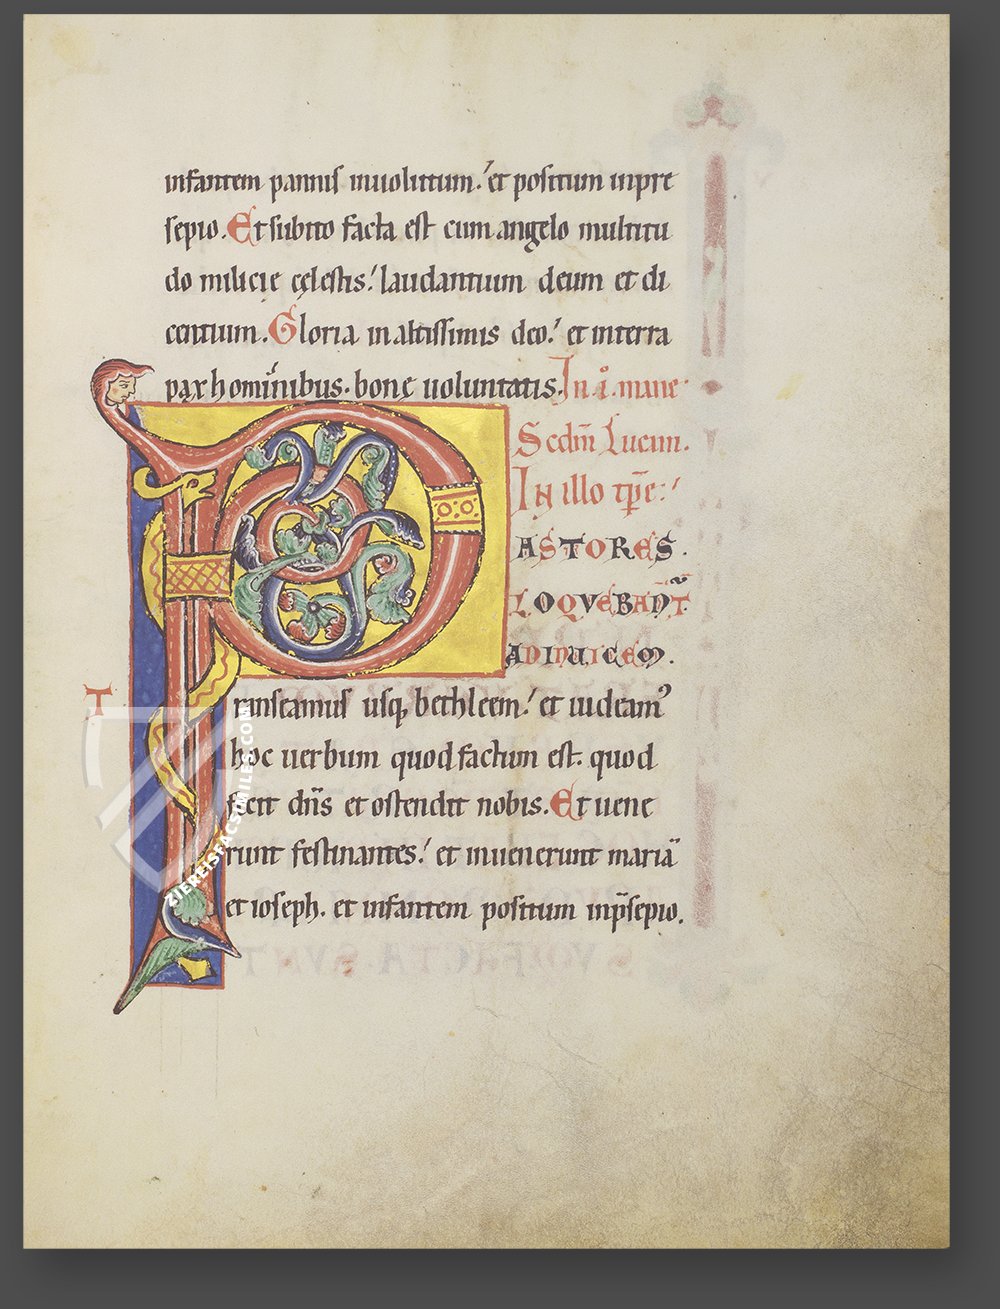 infantem pannis inuolutum. et positum inpre
sepio. Et subito facta est cum angelo multitu
do milicie cęlestis. laudantium deum et di
centium. Gloria in altissimis deo. et interra
pax hominibus. bonę uoluntatis. In .i. mane
Scdm̄ Lucam.
In illo tp̄e:
PASTORES.
LOQVEBANT̃
ADINUICEM.
Transeamus usq; bethleem. et uideam᾽
hoc uerbum quod factum est. quod
fecit dn̄s et ostendit nobis. Et uene
runt festinantes. et inuenerunt mariā
et ioseph. et infantem positum inp̄sepio.
ZIEREISFACSIMILES.COM